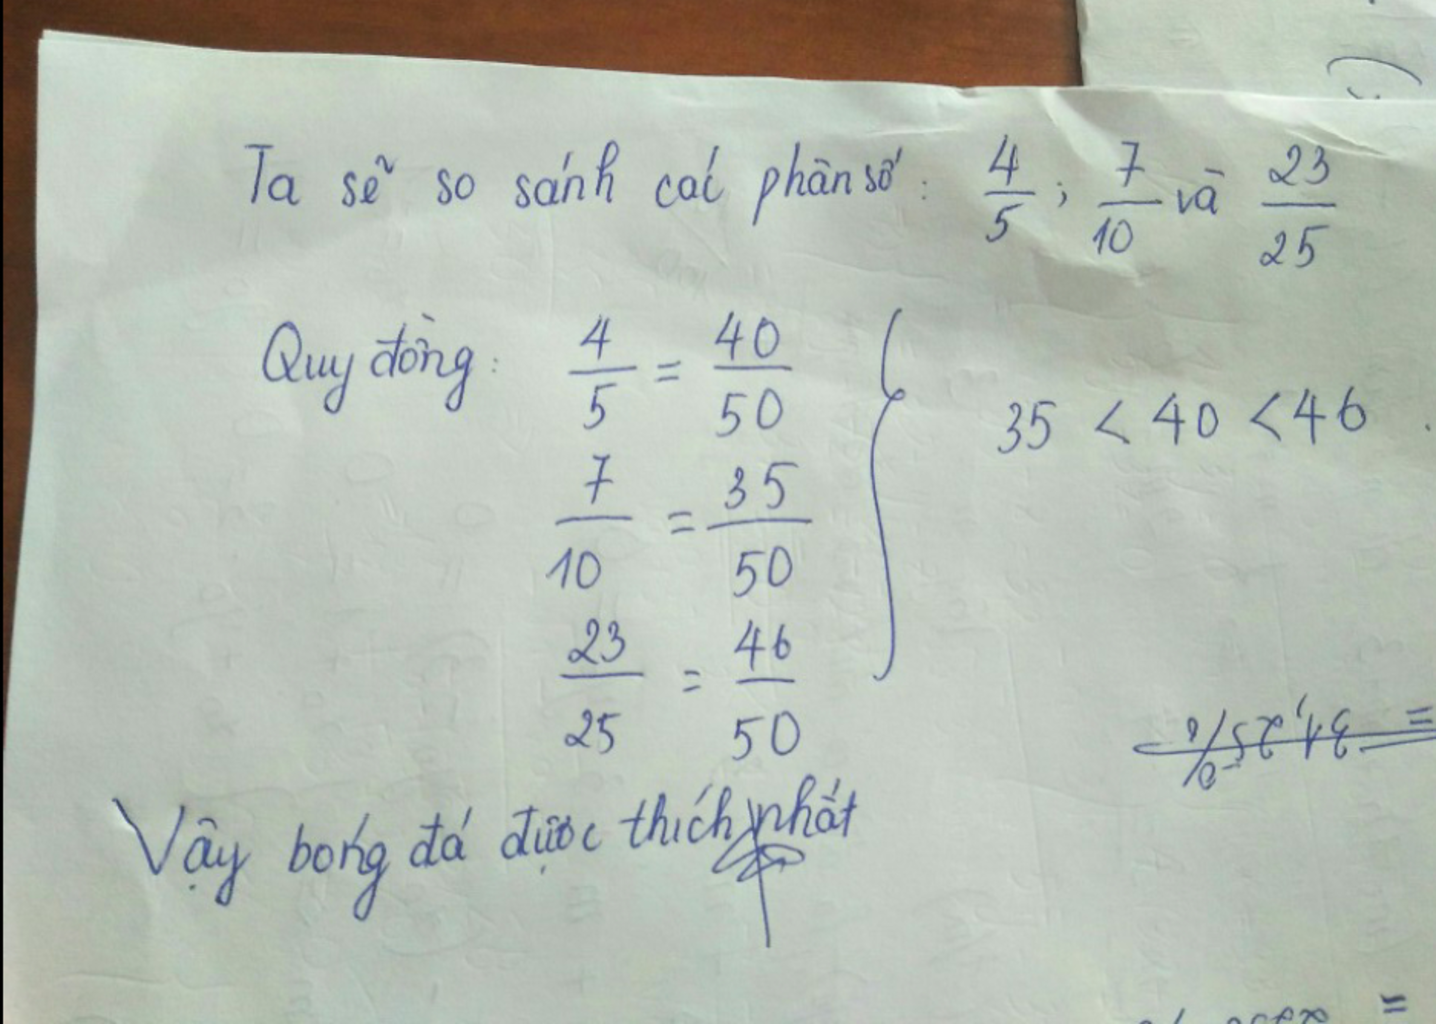 Ta sẽ so sánh các phân số: 4/5; 7/10 và 23/25
Quy đồng: 4/5 = 40/50
7/10 = 35/50
23/25 = 46/50
35 < 40 < 46
Vậy bóng đá được thích nhất
= 31,25%
=